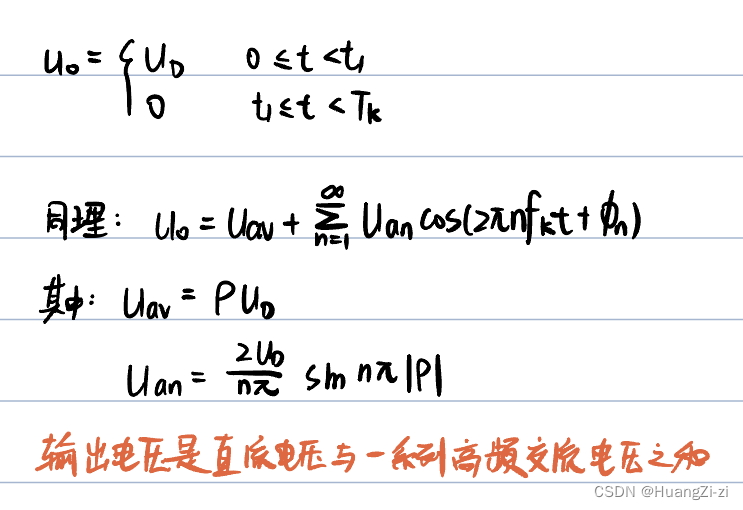 u₀ = { U_D 0 ≤ t < t₁
0 t₁ ≤ t < T_k
同理: u₀ = U_av + ∑_{n=1}^{∞} U_an cos(2πnf_kt + ϕ_n)
其中: U_av = ρU_D
U_an = 2U_D/nπ sin nπ|ρ|
输出电压是直流电压与一系列高频交流电压之和
CSDN @HuangZi-zi